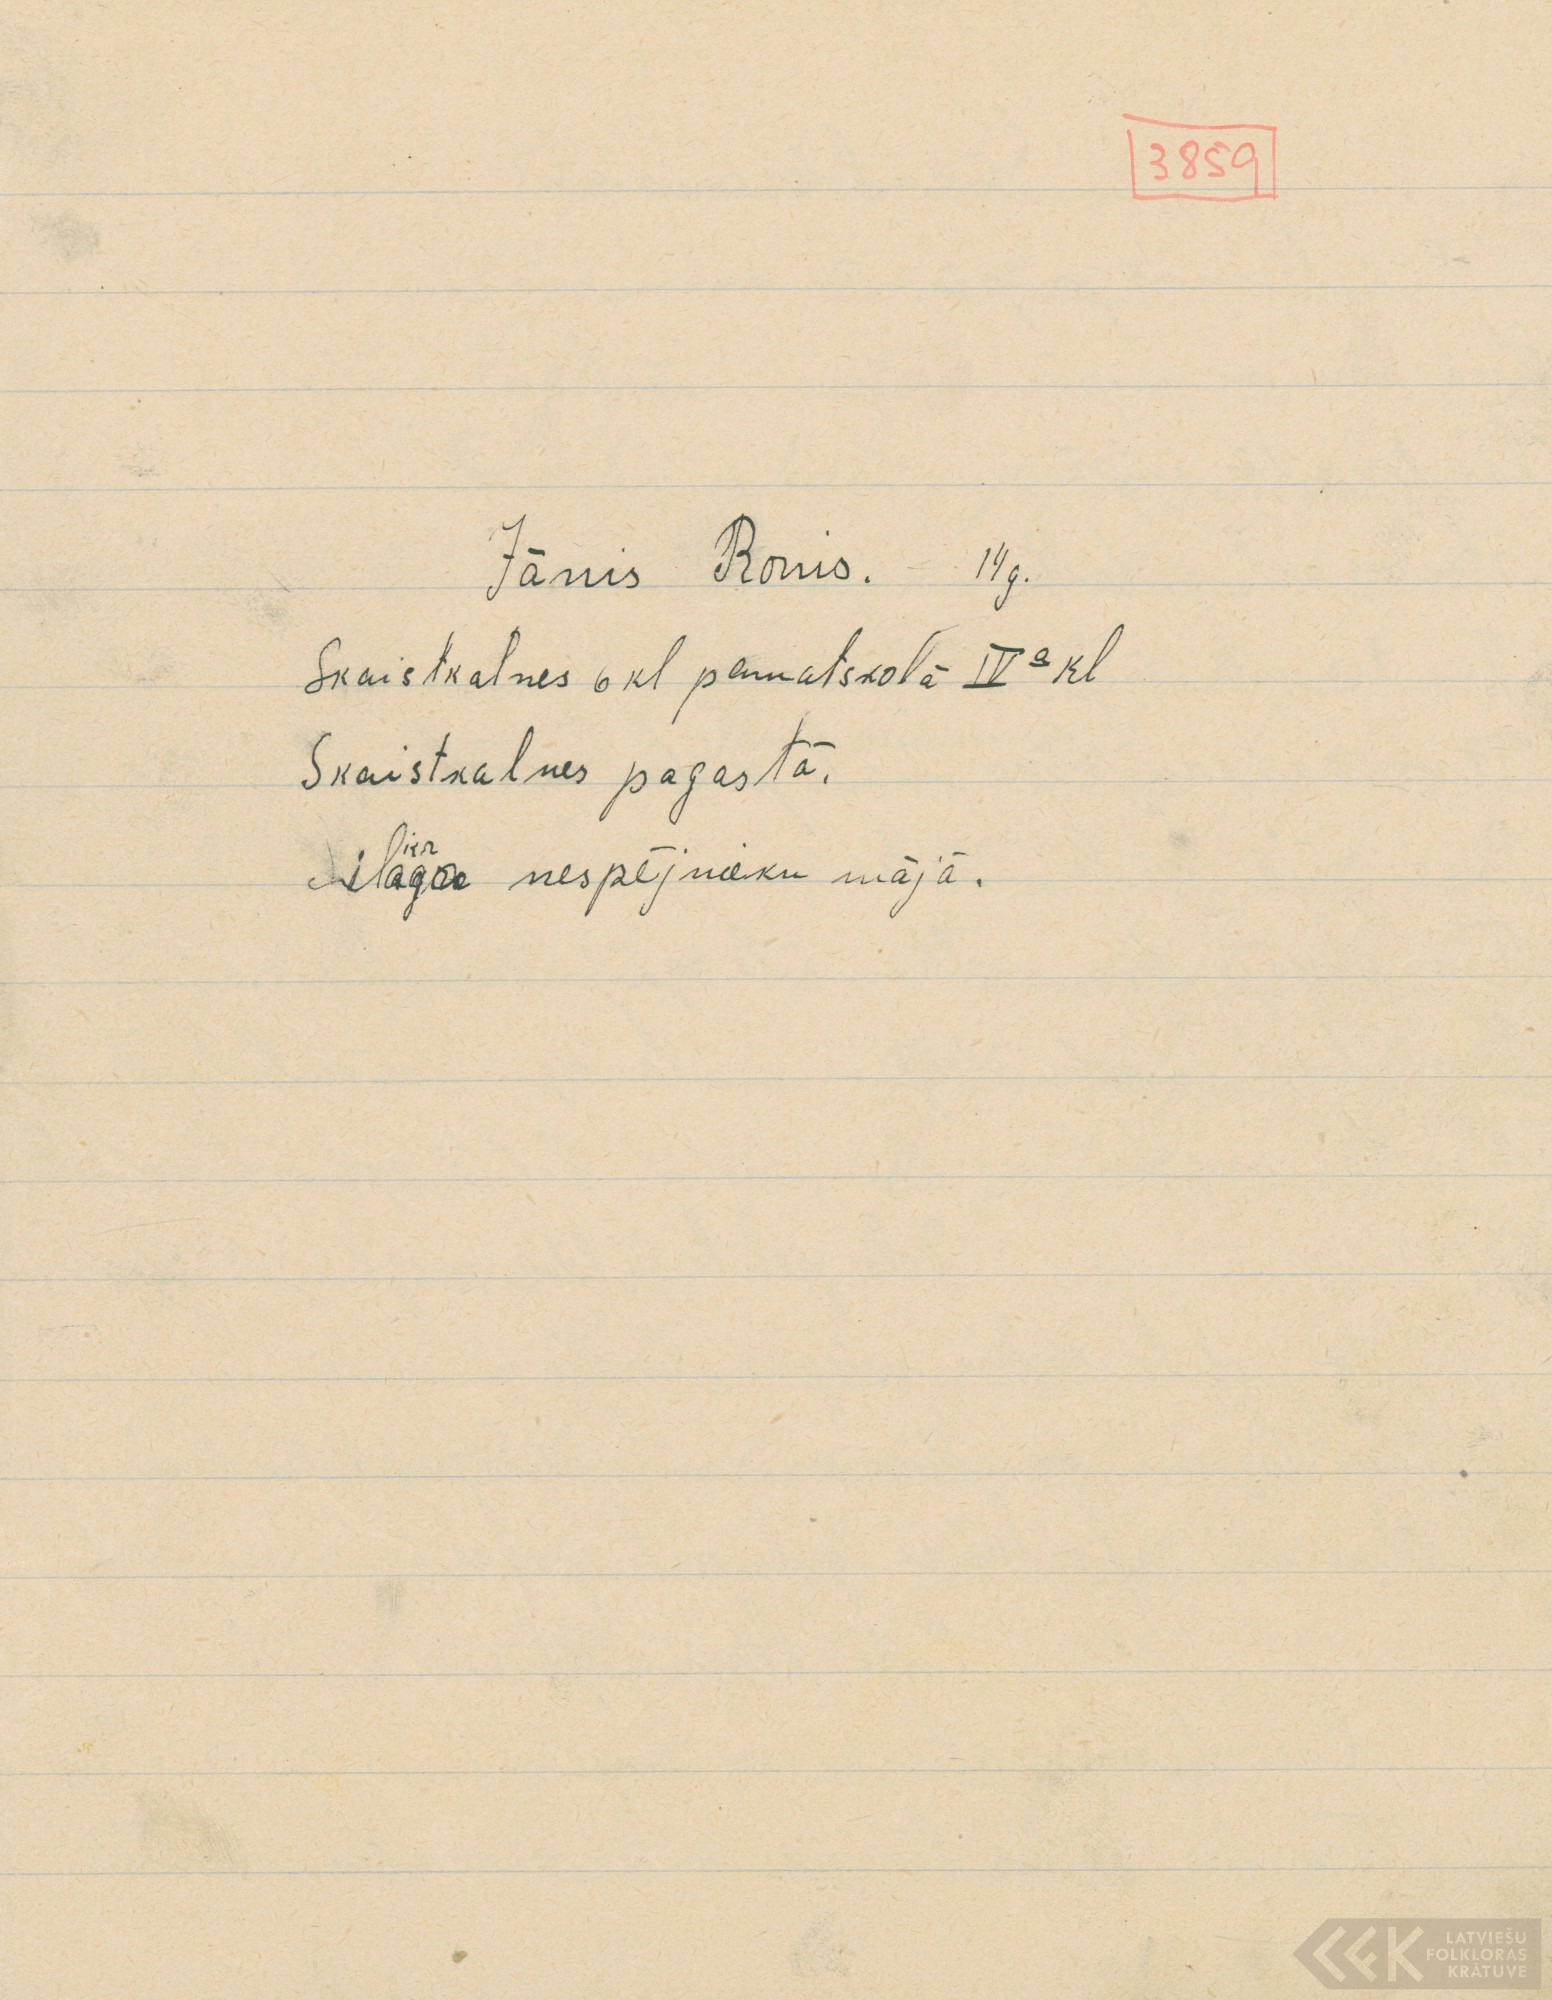 3859
Jānis Ronis. 14g.
Skaistkalnes 6 kl pamatskolā IVa kl
Skaistkalnes pagastā.
nespējnieku mājā.
LATVIEŠU
FOLKLORAS
KRĀTUVE